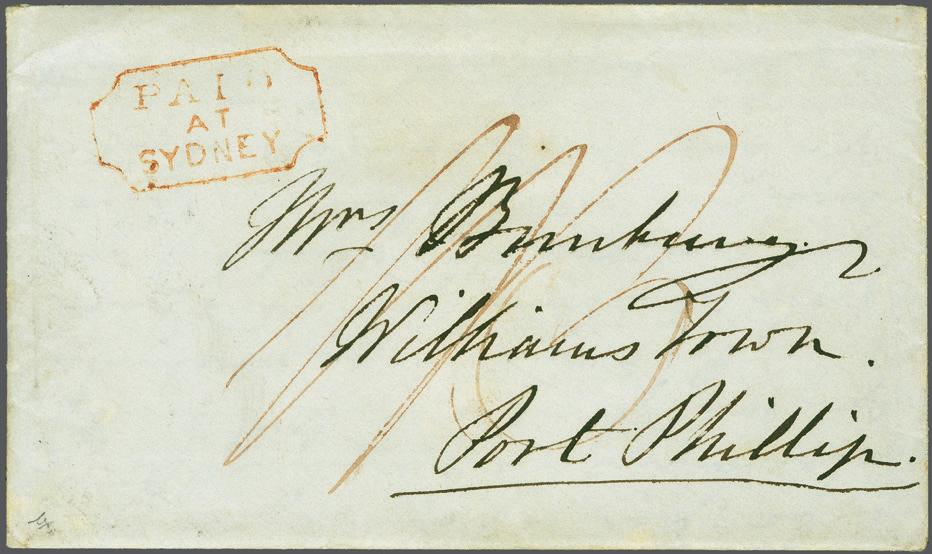 PAID
AT
SYDNEY
Mrs Bunbury
Williams Town.
Port Phillip.